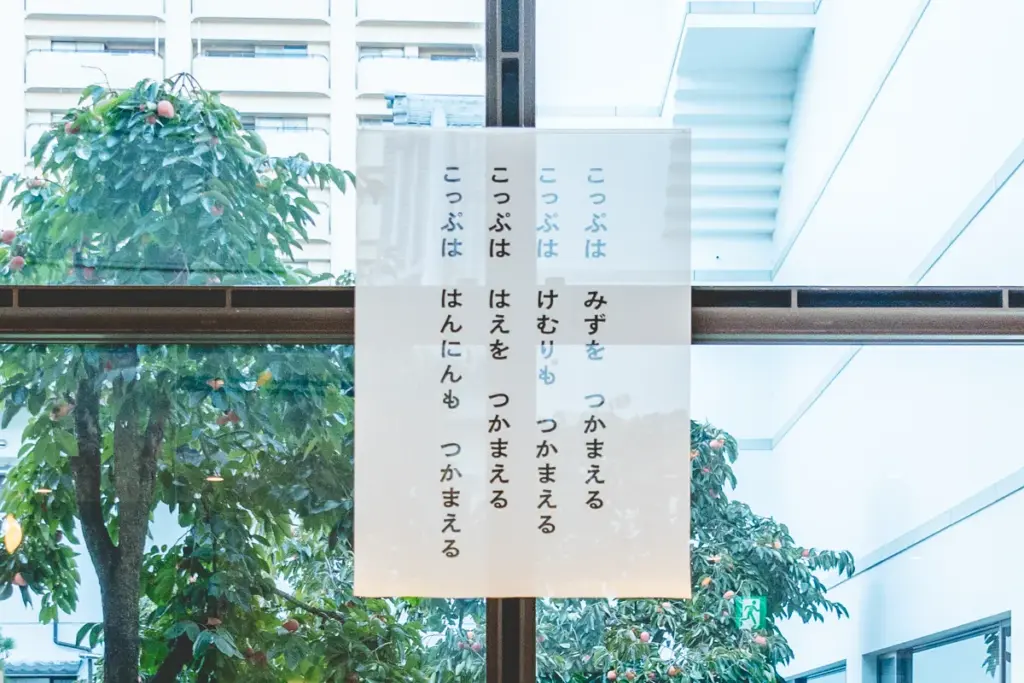 こっぷは　みずを　つかまえる
こっぷは　けむりも　つかまえる
こっぷは　はえを　つかまえる
こっぷは　はんにんも　つかまえる